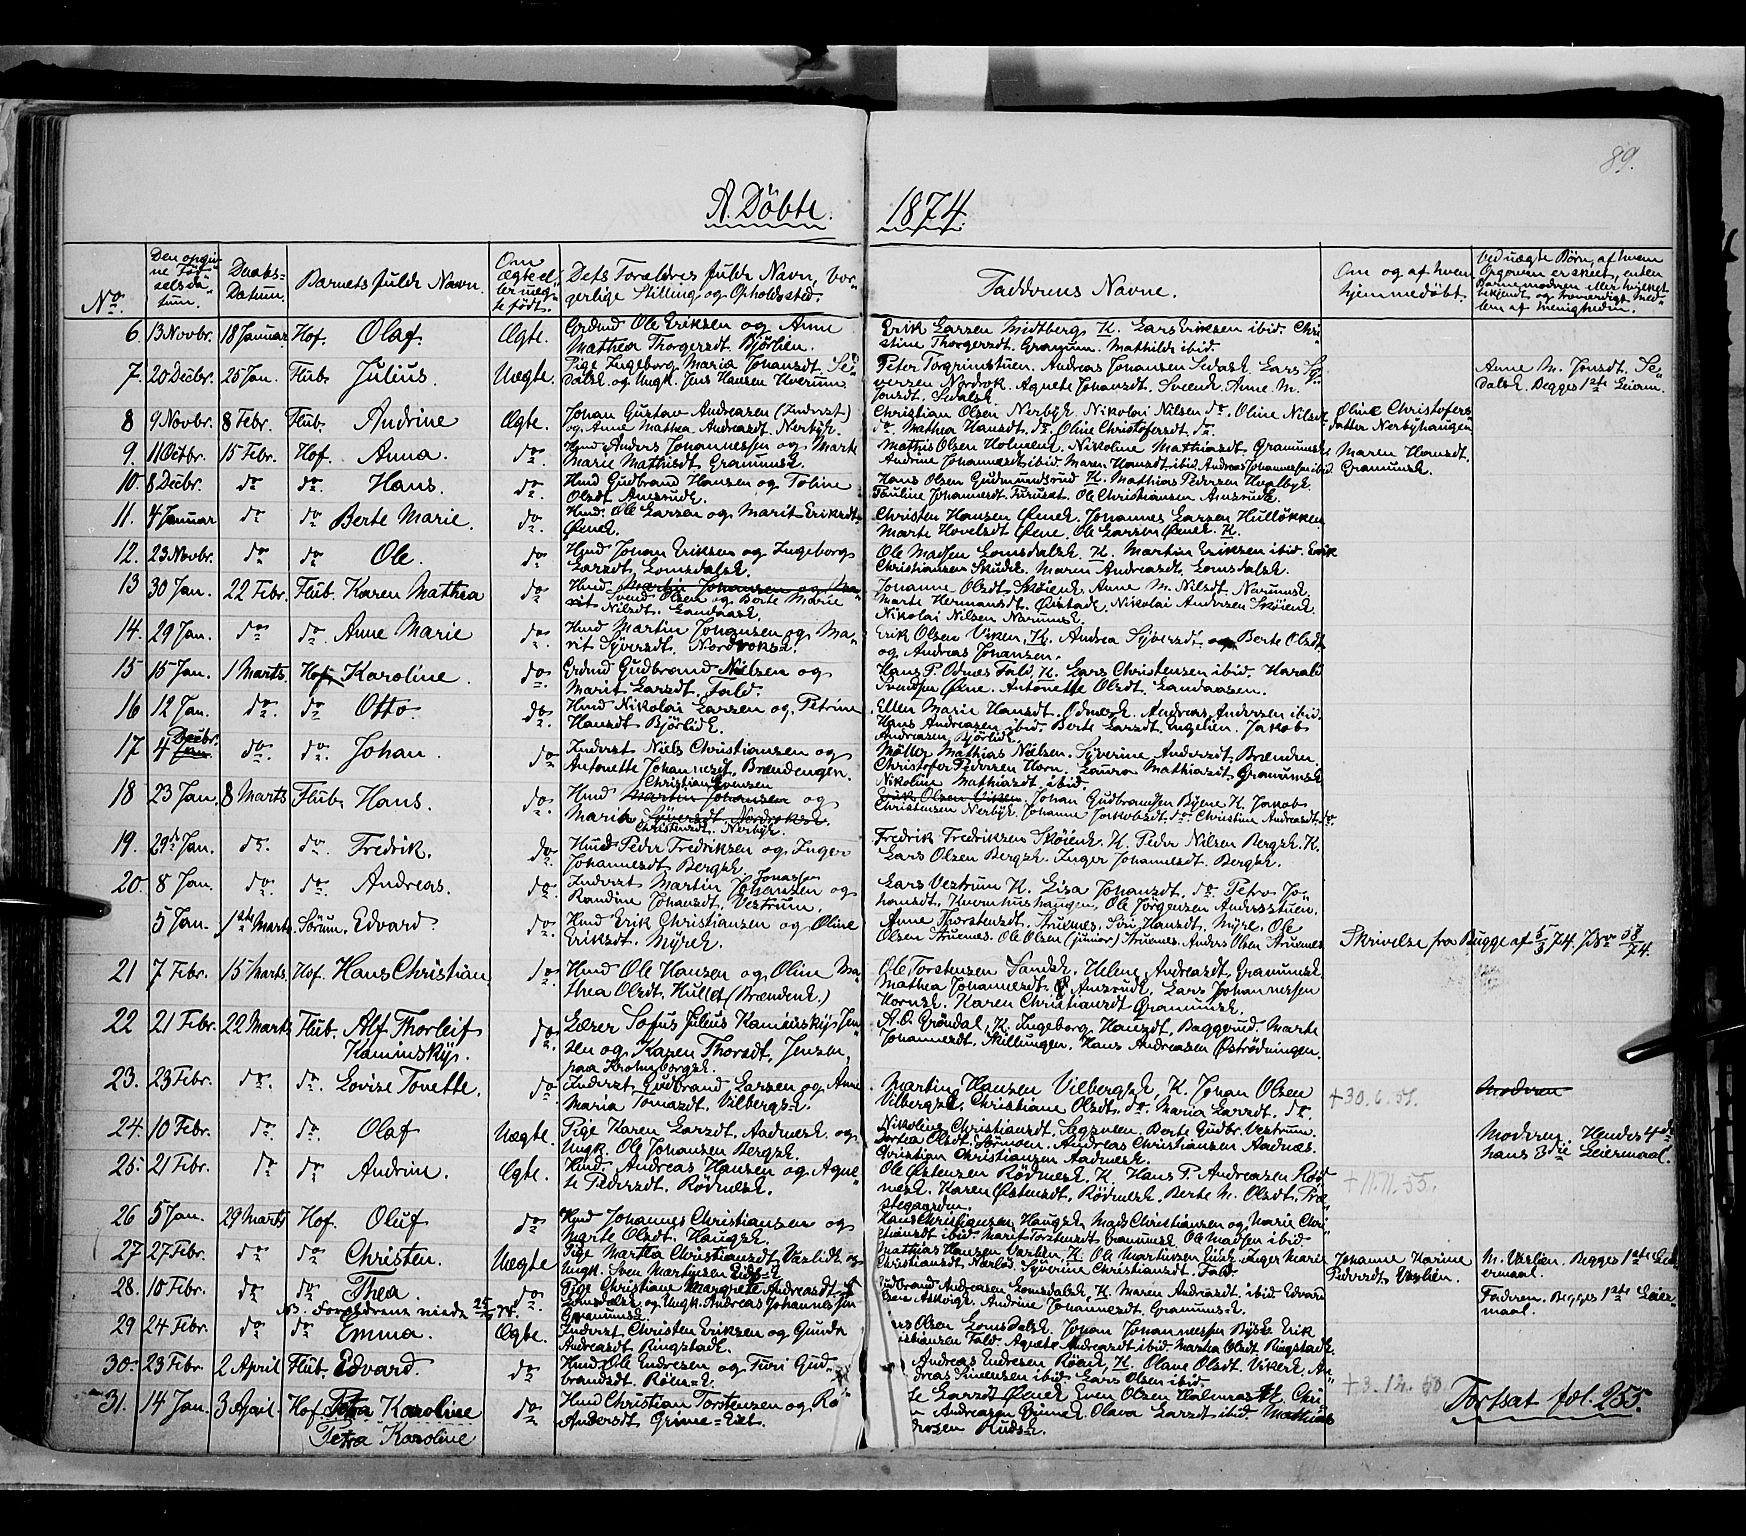 89.
A. Döbte. 1874.
No.
Den opgiv-
ne Föd-
selsda-
tum.
Daabs-
Datum.
Barnets fulde Navn.
Om
ægte el-
ler uæg-
te födt.
Dets Forældres fulde Navn, bor-
gerlige Stilling og Opholdssted.
Faddernes Navne.
Om og af hvem
hjemmedöbt.
Ved uægte Börn, af hvem
Opgaven er skeet, enten
Barnemoderen eller hvilket
bekjendt og troværdigt Med-
lem af Menigheden.
6. 13 Novbr. 18 Januar Hof. Olaf Ægte. Grdmd Ole Eriksen og Anne
Mathea Thorgersdt. Björlien.
Erik Larsen Midtberg K. Lars Eriksen ibid. Chri-
stine Thorgersdt. Granum. Mathilde ibid.
7. 20 Decbr. 25 Jan. Flub. Julius. Uægte. Pige Ingeborg Maria Johansdt. Se-
dalsk. og Ungk. Jens Hansen Kverum
Peter Torgrimstuen. Andreas Johansen Sedalsk. Lars Sy-
versen Nordrok. Agnete Johansdt. Svenek. Anne M.
Jonsdt. Sedalsk.
Anne M. Jonsdt. Se-
dalsk. Begges 1ste Leierm.
8 9 Novbr. 8 Febr. Flub. Andrine Ægte. Johan Gustav Andreasen (Inderst)
og Anne Mathea Andreasdt. Nerbyk.
Christian Olsen Nerbyk. Nikolai Nilsen do. Oline Nilsdt
do. Mathea Hansdt. do. Oline Christofersdt. do.
Oline Christofers-
datter Nerbyhaugen
9. 11 Octbr. 15 Febr. Hof. Anna. do. Hmd Anders Johannessen og Marte
Marie Mathisdt. Granumsk.
Mathis Olsen Holmenk. Nikoline Mathiasdt. Granumsk
Andrine Johannesdt. ibid. Maren Hansdt. ibid. Andreas Johannessen ibid
Maren Hansdt.
Granumsk.
10. 8 Decbr. do do. Hans. do. Hmd Gudbrand Hansen og Toline
Olsdt. Amsrudk.
Hans Olsen Gudmundsrud K. Mathias Pedersen Hvalbyk.
Pauline Johannesdt. Furuset. Ole Christiansen Amsrudk.
11. 4 Januar do do Berte Marie. do Hmd. Ole Larsen og Marit Eriksdt.
Öinek.
Christen Hansen Öinek. Johannes Larsen Hullökken
Marte Hovelsdt Öine. Ole Larsen Öinek. K.
12. 23 Novbr. do do Ole. do Hmd Johan Eriksen og Ingeborg
Larsdt. Lomsdalsk.
Ole Madsen Lomsdalsk. K. Martin Eriksen ibid. Erik
Christiansen Skudk. Maren Andreasdt. Lomsdalsk.
13 30 Jan. 22 Febr. Flub. Karen Mathea do Hmd Martin Johansen og Ma-
Svend Olsen og Berte Marie
rit Nilsdt. Landaask.
Johanne Olsdt Sköienk. Anne M. Nilsdt. Narumsk.
Marte Hermansdt. Öistadk. Nikolai Andersen Sköienk.
Nikolai Nilsen Narumsk.
14. 29 Jan. do do. Anne Marie do. Hmd Martin Johansen og Ma-
rit Syversdt. Nordroksk.
Erik Olsen Viken, K. Andrea Syversdt. og Berte Olsdt
og Andreas Johansen.
15 15 Jan. 1 Marts. Hof. Karoline. do Grdmd Gudbrand Nielsen og
Marit Larsdt. Fald.
Hans P. Odnes Fald. K. Lars Christensen ibid. Harald
Svendsen Öine. Antonette Olsdt. Landaasen.
16 12 Jan. do. do Otto. do. Hmd Nikolai Larsen og Petrine
Hansdt Björlidk.
Ellen Marie Hansdt. Odnesk. Andreas Andersen ibid.
Hans Andreasen ibid. Berte Larsdt. Engelien. Jakob
Andreasen Björlidk.
17 4 Decbr. Jan. do. do. Johan. do Inderst Niels Christiansen og
Antonette Johannesdt. Brændengen.
Möller Mathias Nielsen. Syverine Andersdt. Brænden.
Christofer Pedersen Horn. Laura Mathiasdt. Granumsk
Nikoline Mathiasdt ibid.
18 23 Jan. 8 Marts Flub. Hans. do. Christian Evensen
Hmd Martin Johansen og
Marit Syversdt Nordroksk.
Christensdt. Nerbyk.
Erik Olsen Viken Johan Gudbrandsen Byene K. Jakob
Christensen Nerbyk. Johanne Jakobsdt. do. Christine Andreasdt. do.
19. 29de Jan. do. do. Fredrik. do Hmd Peder Fredriksen og Inger
Johannesdt Bergsk.
Fredrik Fredriksen Sköienk. K. Peder Nilsen Bergsk. K.
Lars Olsen Bergsk. Inger Johannesdt. Bergsk.
20. 8 Jan. do do. Andreas. do. Jonassen
Inderst Martin Johansen og
Randine Johansdt. Vestrum.
Lars Vestrum K. Lisa Johansdt. do. Petra Jo-
hansdt. Kvernhushaugen, Ole Jörgensen Andersstuen.
5 Jan. 1ste Marts Sörum. Edvard. do. Hmd Erik Christiansen og Oline
Eriksdt. Myrek.
Anne Thorstensdt. Struenes. Siri Hansdt. Myre. Ole
Olsen Struenes. Ole Olsen (junior) Struenes. Anders Olsen Struenes
Skrivelse fra Bugge af 5/3 74. Br. 58/74.
21 7 Febr. 15 Marts. Hof. Hans Christian do Hmd Ole Hansen og Oline Ma-
thea Olsdt. Hullet (Brændenk.)
Ole Torstensen Sandsk. Helene Andreasdt. Granumsk
Mathea Johannesdt. Amsrudk. Lars Johannessen
Hornsk. Karen Christiansdt Granumsk.
22 21 Febr. 22 Marts Flub. Alf Thorleif
Kaminskys.
do. Læser Sofus Julius Kaminskys Jen-
sen og Karen Thorsdt. Jensen,
paa Kronborgsk.
A. O. Gröndal, K. Ingeborg Hansdt. Baggerud. Marte
Johannesdt. Skillingen. Hans Andreasen Öströdningen.
23. 23 Febr. do. do. Lovise Tonette. do Inderst Gudbrand Larsen og Anne
Maria Tomasdt. Vilbergsk.
Martin Hansen Vilbergsk. K. Johan Olsen
Vilbergsk. Christiane Olsdt. do. Maria Larsdt. do.
+30.6.51.
Moderen
24. 10 Febr. do. do. Olaf Uægte. Pige Karen Larsdt. Aadnesk. og
Ungk. Ole Johansen Bergsk.
Nikoline Christiansdt. Segsneen. Berte Gudbr. Vestrum.
Dortea Olsdt. Sörumoen. Andreas Christiansen Aadnæs.
Christian Christiansen Aadnesk.
Moderen. Hendes 4de
hans 3die Leiermaal.
25. 21 Febr. do do. Andrin. Ægte. Hmd. Andreas Hansen og Agne-
te Pedersdt. Rödnesk.
Ole Östensen Rödnesk. K. Hans P. Andreasen Röd-
nesk. Karen Östensdt. Rödnesk. Berte M. Olsdt. Præ-
stegaarden.
+11.11.55.
26 5 Jan. 29 Marts Hof. Oluf do Hmd Johannes Christiansen og
Marte Olsdt. Haugsk.
Hans Christiansen Haugsk. Mads Christiansen og Marie Chri-
stiansdt ibid. Marit Torstensdt Granumsk. Ole Madsen ibid
27. 27 Febr. do do Christen. Uægte Pige Martha Christiansdt. Vaslidk og
Ungk. Sven Martinsen Eidsk.
Mathias Hansen Vaslien K. Ole Martinsen Eidsk. Inger Marie
Christiansdt. Nærlod. Syverine Christiansdt. Fald.
Johanne Karine
Pedersdt. Vaslien.
M. Vaslien. Begges 1ste Lei-
ermaal.
28. 10 Febr. do do. Thea. do. Pige Christiane Margrete Andreasdt.
Lomsdalsk. og Ungk. Andreas Johannessen
Granumsk.
Gudbrand Andreasen Lomsdalsk. K. Maren Andreasdt. ibid. Edvard
Askvigk. Andrine Johannesdt. Granumsk.
Faderen. Begges 1ste Leier-
maal.
NB. Forældrene viede 25/9 74.
29 24 Febr. do do Emma. Ægte. Inderst Christen Eriksen og Gunda
Andreasdt. Ringstadk.
Olsen Lomsdalsk. Johan Johannessen Bysk. Erik
istiansen Fald. Agnete Andreasdt ibid. Martha Olsdt Ringstadk.
30. 23 Febr. 2 April Flub. Edvard. do Hmd. Ole Endresen og Turi Gud-
brandsdt. Rönsk.
Andreas Endresen Röank. K. Olave Olsdt. Vikerk. An-
dreas Simensen ibid. Lars Olsen ibid.
+3.12.50
31. 14 Jan. 3 April. Hof. Petra Karoline
Petra Karoline
do Hmd Christian Torstensen og Ro
Andersdt. Grime-Eiet.
Larsdt Öinek. Even Olsen Halmrast K. Chri-
n Andreasen Grimek. Olava Larsdt ibid. Mathias
drosen Hudsk.
Fortsat fol. 255.